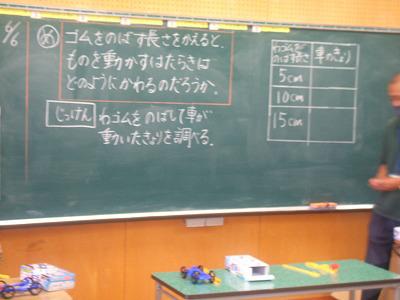 6/6
め ゴムをのばす長さをかえると、
ものを動かすはたらきは
どのようにかわるのだろうか。
じっけん わゴムをのばして車が
動いたきょりを調べる。
わゴムを
のばす長さ 車のきょり
5cm
10cm
15cm